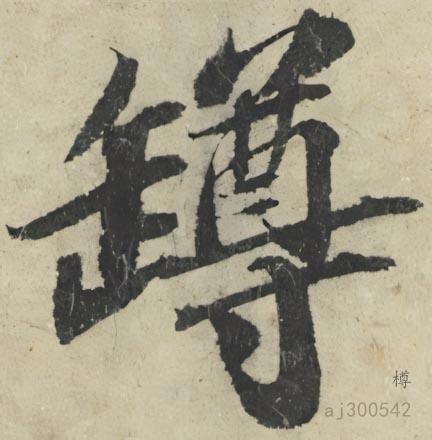 罇
樽
aj300542